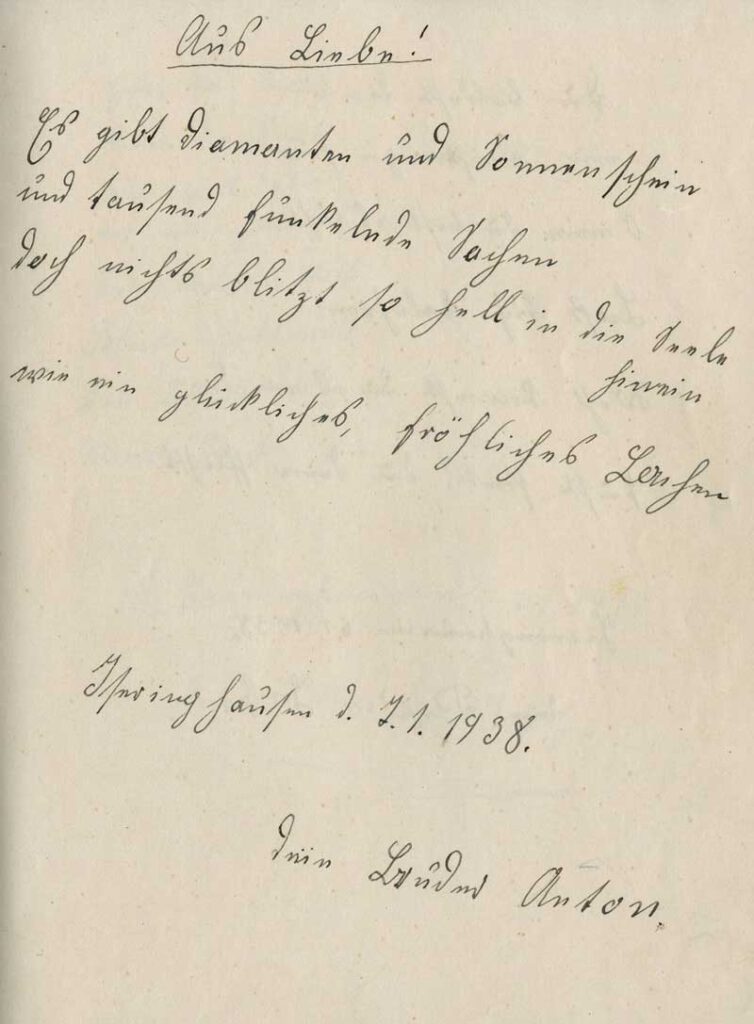 Aus Liebe!
Es gibt Diamanten und Sonnenschein
und tausend funkelnde Sachen
doch nichts blitzt so hell in die Seele
hinein
wie ein glückliches, fröhliches Lachen
Iseringhausen d. 7.1.1938.
dein Bruder Anton.